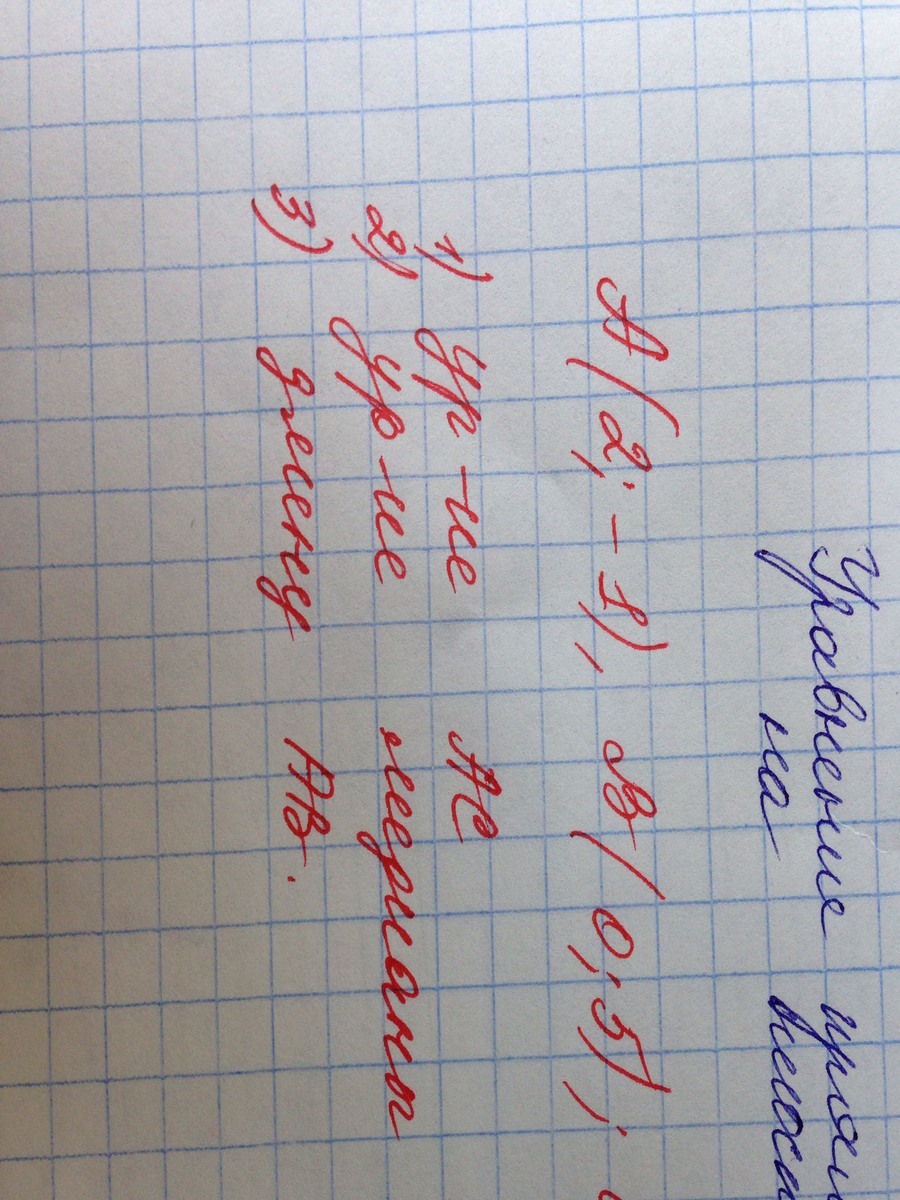 Уравнение прям
на плоск
A(2; -1), B(0; 5);
1) Ур-ие AC
2) Ур-ие медианы
3) Длину AB.